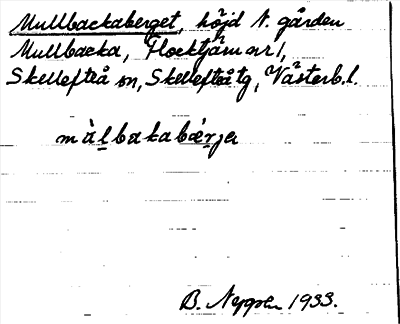 Mullbackaberget, höjd N. gården
Mullbacka, Flocktjärn nr 1,
Skellefteå sn, Skellefteå tg, Västerb. l.
B. 1933.